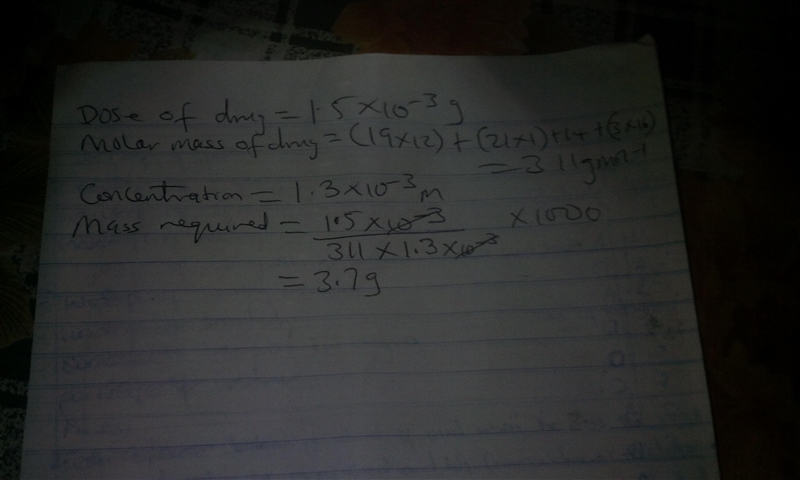 Dose of drug = 1.5 × 10⁻³ g
Molar mass of drug = (19×12) + (21×1) + 14 + (3×16)
= 311 gmol⁻¹
Concentration = 1.3 × 10⁻³ m
Mass required = 1.5 × 10⁻³ / 311 × 1.3 × 10⁻³ × 1000
= 3.7g